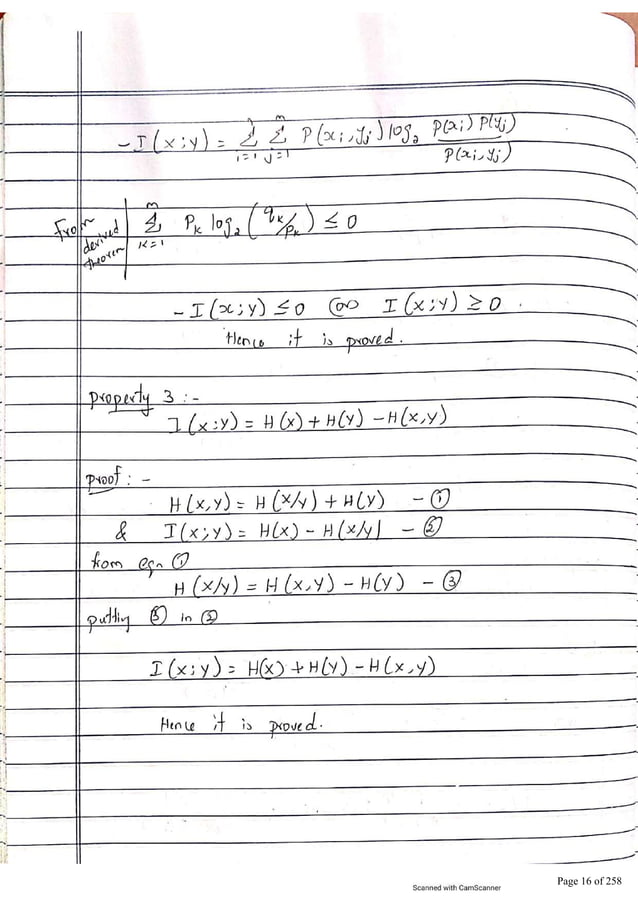 -I(x;y) = Σ_{i=1} Σ_{j=1}^{m} P(xi,yj) log2 P(xi) P(yj) / P(xi,yj)
From derived theorem | Σ_{k=1}^{m} Pk log2 (qk/pk) ≤ 0
-I(x;y) ≤ 0 (or) I(x;y) ≥ 0.
Hence it is proved.
property 3 :-
I(x:y) = H(x) + H(y) - H(x,y)
proof : -
H(x,y) = H(x/y) + H(y) - ①
& I(x;y) = H(x) - H(x/y) - ②
from eqn ①
H(x/y) = H(x,y) - H(y) - ③
putting ③ in ②
I(x;y) = H(x) + H(y) - H(x,y)
Hence it is proved.
Scanned with CamScanner
Page 16 of 258